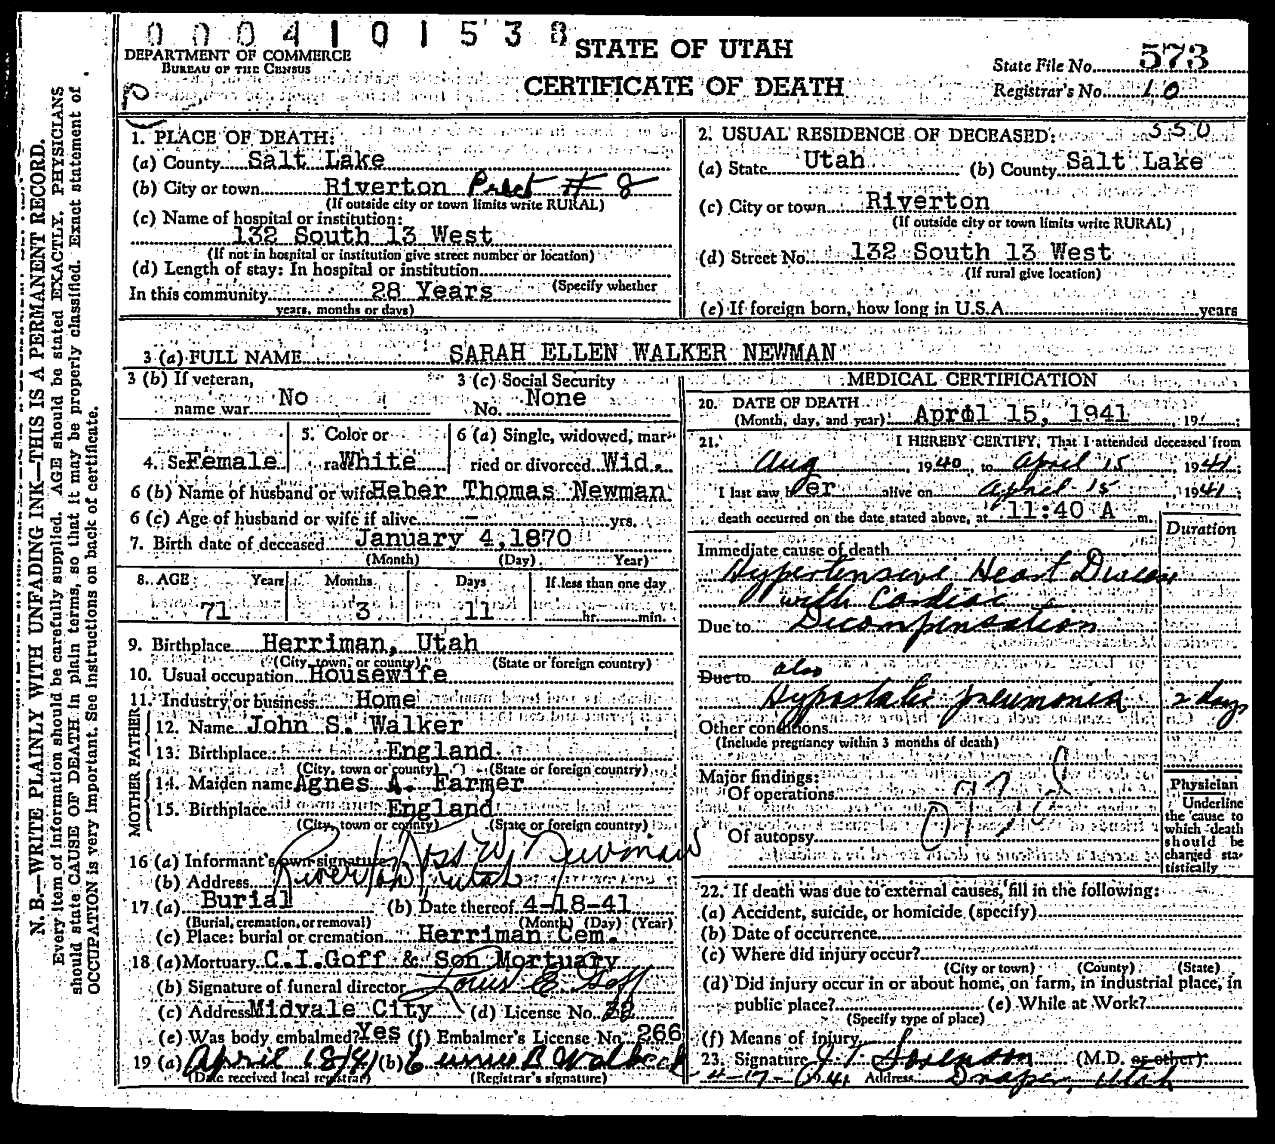 0004101538
DEPARTMENT OF COMMERCE
BUREAU OF THE CENSUS
STATE OF UTAH
CERTIFICATE OF DEATH
State File No. 573
Registrar's No. 10
N. B.—WRITE PLAINLY WITH UNFADING INK—THIS IS A PERMANENT RECORD.
Every item of information should be carefully supplied. AGE should be stated EXACTLY. PHYSICIANS
should state CAUSE OF DEATH in plain terms, so that it may be properly classified. Exact statement of
OCCUPATION is very important. See instructions on back of certificate.
1. PLACE OF DEATH:
(a) County Salt Lake
(b) City or town Riverton Prect # 8
(If outside city or town limits write RURAL)
(c) Name of hospital or institution:
132 South 13 West
(If not in hospital or institution give street number or location)
(d) Length of stay: In hospital or institution
(Specify whether
In this community 28 Years
years, months or days)
2. USUAL RESIDENCE OF DECEASED: 550
(a) State Utah (b) County Salt Lake
(c) City or town Riverton
(If outside city or town limits write RURAL)
(d) Street No. 132 South 13 West
(If rural give location)
(e) If foreign born, how long in U.S.A. years
3 (a) FULL NAME SARAH ELLEN WALKER NEWMAN
3 (b) If veteran, name war No
3 (c) Social Security No. None
4. Sex Female
5. Color or race White
6 (a) Single, widowed, married or divorced Wid.
6 (b) Name of husband or wife Heber Thomas Newman
6 (c) Age of husband or wife if alive — yrs.
7. Birth date of deceased January 4, 1870
(Month) (Day) Year)
8. AGE Years Months Days If less than one day
71 3 11 hr. min.
9. Birthplace Herriman, Utah
(City, town, or county) (State or foreign country)
10. Usual occupation Housewife
11. Industry or business Home
FATHER
12. Name John S. Walker
13. Birthplace England
(City, town or county) (State or foreign country)
MOTHER
14. Maiden name Agnes A. Farmer
15. Birthplace England
(City, town or county) (State or foreign country)
16 (a) Informant's own signature Ross W. Newman
(b) Address Riverton Utah
17 (a) Burial (b) Date thereof 4-18-41
(Burial, cremation, or removal) (Month) (Day) (Year)
(c) Place: burial or cremation Herriman Cem.
18 (a) Mortuary C.I.Goff & Son Mortuary
(b) Signature of funeral director Louis E Goff
(c) Address Midvale City (d) License No. 32
(e) Was body embalmed? Yes (f) Embalmer's License No. 266
19 (a) April 18/41 (b)
(Date received local registrar) (Registrar's signature)
MEDICAL CERTIFICATION
20. DATE OF DEATH
(Month, day, and year) April 15, 1941, 19
21. I HEREBY CERTIFY, That I attended deceased from
Aug, 1940 to April 15 1941
I last saw her alive on April 15, 1941;
death occurred on the date stated above, at 11:40 A m.
Duration
Immediate cause of death
Hypertensive Heart Disease
with Cardiac
Due to Decompensation
also
Due to
Hypostatic pneumonia 2 days
Other conditions
(Include pregnancy within 3 months of death)
Major findings:
Of operations
Of autopsy
Physician
Underline the cause to which death should be charged statistically
22. If death was due to external causes, fill in the following:
(a) Accident, suicide, or homicide (specify)
(b) Date of occurrence
(c) Where did injury occur?
(City or town) (County) (State)
(d) Did injury occur in or about home, on farm, in industrial place, in
public place? (e) While at Work?
(Specify type of place)
(f) Means of injury
23. Signature J. T. Sorenson (M.D. or other)
4-17-1941 Address Draper, Utah